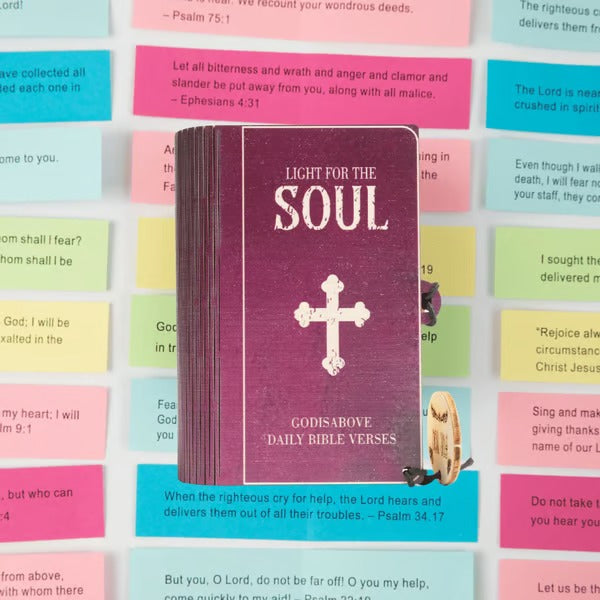 Lord!
We recount your wondrous deeds.
– Psalm 75:1
The righteous
delivers them
have collected all
each one in
Let all bitterness and wrath and anger and clamor and
slander be put away from you, along with all malice.
– Ephesians 4:31
The Lord is near
crushed in spirit
ome to you.
Even though I walk
death, I will fear no
your staff, they com
LIGHT FOR THE
SOUL
GODISABOVE
DAILY BIBLE VERSES
hom shall I fear?
hom shall I be
19
I sought the
delivered m
God; I will be
exalted in the
God
in tr
help
"Rejoice alw
circumstance
Christ Jesus
my heart; I will
lm 9:1
Fear
God
you
Sing and mak
giving thanks
name of our L
, but who can
:4
When the righteous cry for help, the Lord hears and
delivers them out of all their troubles. – Psalm 34.17
Do not take t
you hear you
from above,
with whom there
But you, O Lord, do not be far off! O you my help,
come quickly to my aid! – Psalm 22:19
Let us be th